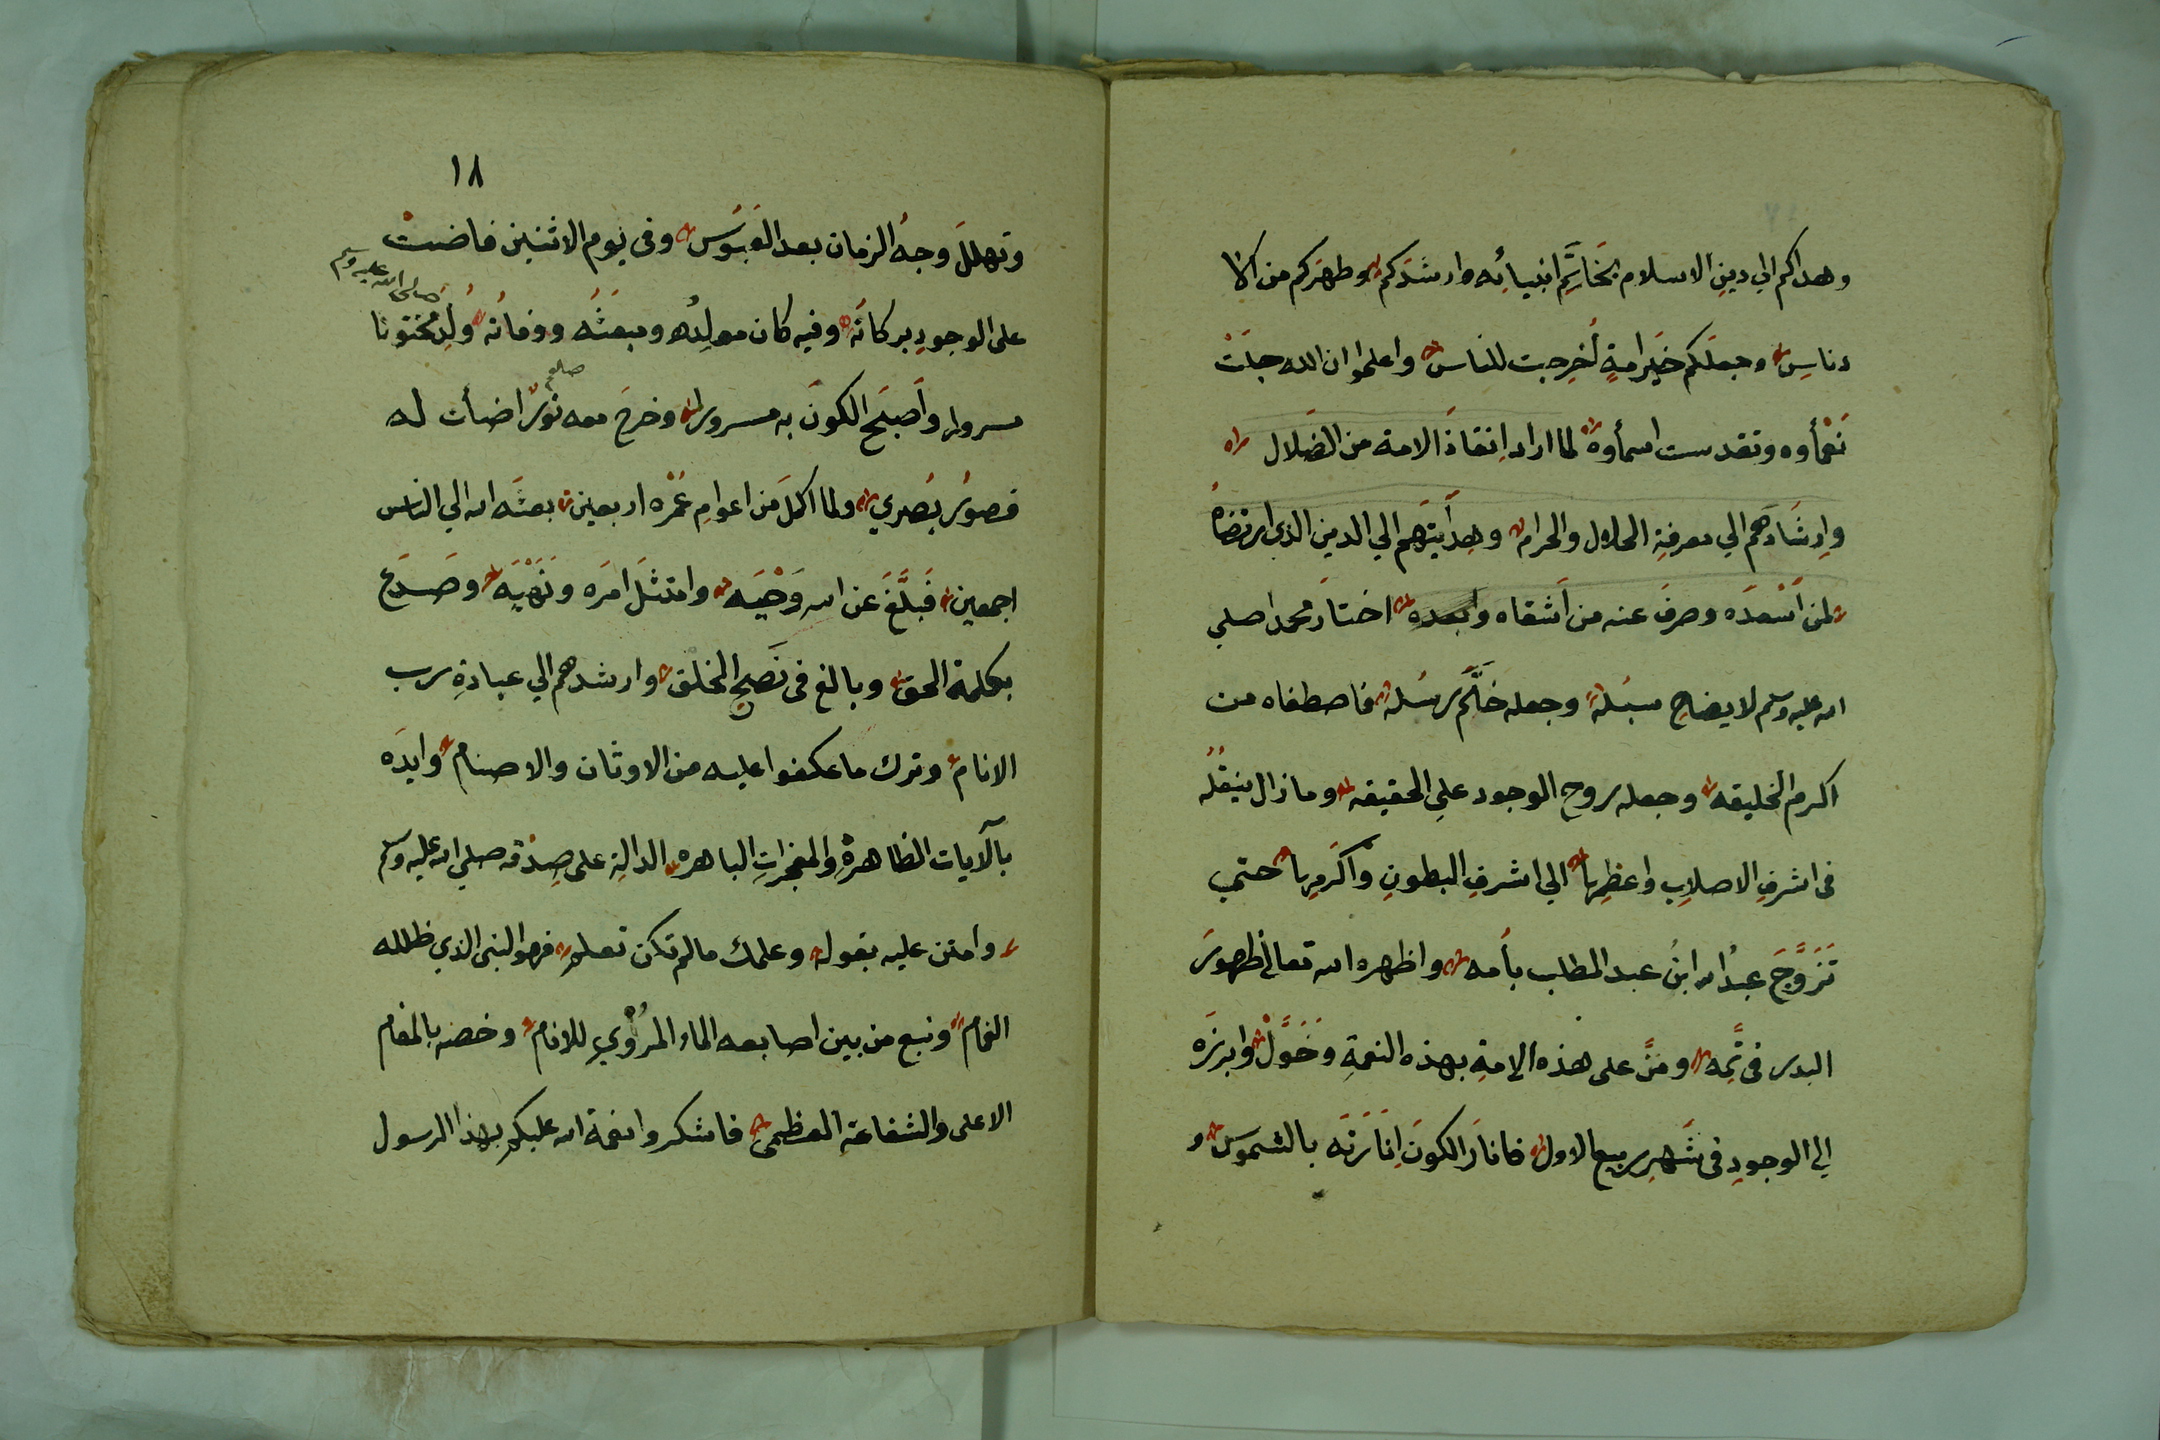 وهداكم الي دين الاسلام بخاتم انبيائه وارشدكم وطهركم من الا
دناس وجعلكم خير امة اخرجت للناس واعلموا ان الله جلت
نعمأوه وتقدست اسمأوه لما اراد انقاذ الامة من الضلال
وارشادهم الي معرفة الحلال والحرام وهدايتهم الي الدين الذي ارتضاه
لمن اسعده وصرف عنه من اشقاه وابعده اختار محمدا صلي
الله عليه وسلم لايضاح سبله وجعله ختم رسله فاصطفاه من
اكرم الخليقه وجعله روح الوجود علي الحقيقه وما زال ينقله
فى اشرف الاصلاب واعظمها الي اشرف البطون واكرمها حتي
تزوج عبد الله ابن عبد المطلب بأمه واظهره الله تعالي ظهور
البدر فى تمه ومن على هذه الامة بهذه النعمة وخول وابرزه
الي الوجود فى شهر ربيع الاول فانار الكون انارته بالشموس و
١٨
وتهلل وجه الزمان بعد العبوس وفى يوم الاثنين فاضت
على الوجود بركاته وفيه كان مولده ومبعثه ووفاته ولد صلى الله عليه وسلم مختونا
مسرورا واصبح الكون به مسرورا وخرج معه صلعم نور اضأت له
قصور بصري ولما اكمل من اعوام عمره اربعين بعثه الله الي الناس
اجمعين فبلغ عن الله وحيه وامتثل امره ونهيه وصدع
بكلمة الحق وبالغ فى نصح الخلق وارشدهم الي عبادة رب
الانام وترك ما عكفوا عليه من الاوثان والاصنام وايده
بالآيات الظاهرة والمعجزات الباهره الدالة على صدقه صلي الله عليه وسلم
وامتن عليه بقوله وعلمك مالم تكن تعلم فهو النبى الذي ظلله
الغمام ونبع من بين اصابعه الماء المروي للانام وخصه بالمقام
الاعلى والشفاعة العظمي فاشكروا نعمة الله عليكم بهذا الرسول